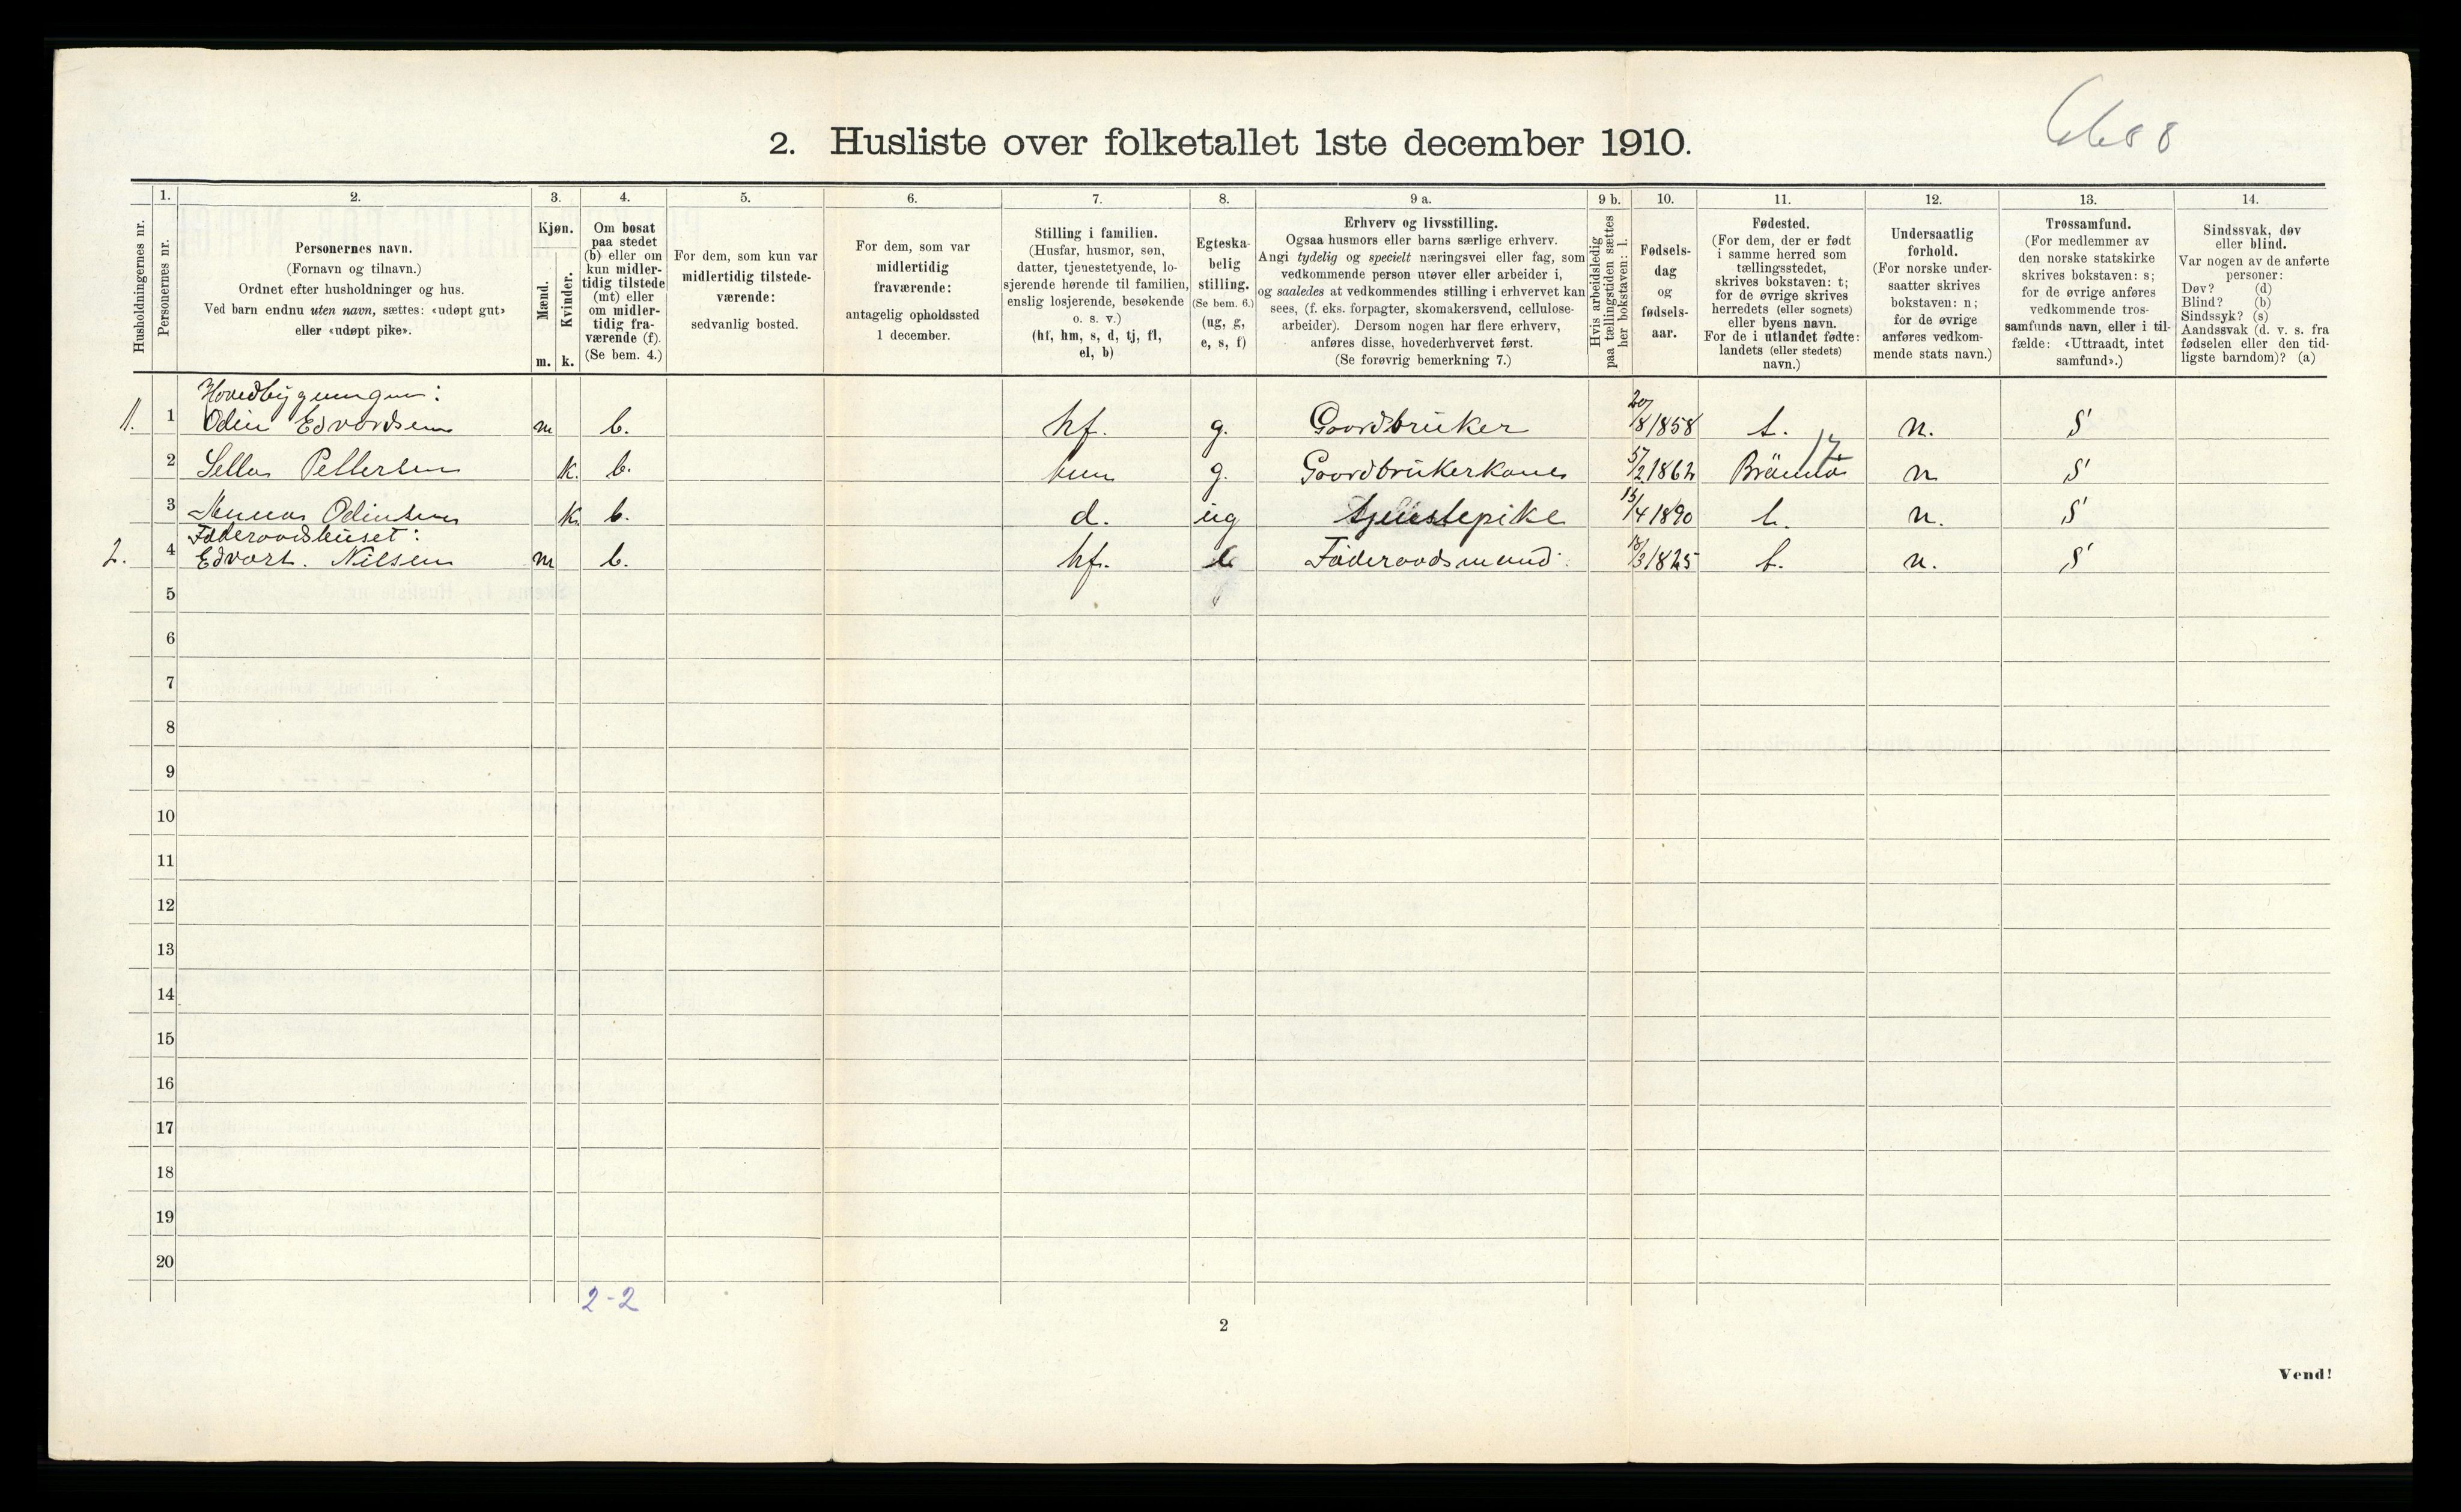 2. Husliste over folketallet 1ste december 1910.
1. 2. 3. 4. 5. 6. 7. 8. 9 a. 9 b. 10. 11. 12. 13. 14.
Husholdningernes nr.
Personernes nr.
Personernes navn.
(Fornavn og tilnavn.)
Ordnet efter husholdninger og hus.
Ved barn endnu uten navn, sættes: «udøpt gut»
eller «udøpt pike».
Kjøn.
Mænd.
m.
Kvinder.
k.
Om bosat
paa stedet
(b) eller om
kun midler-
tidig tilstede
(mt) eller
om midler-
tidig fra-
værende (f).
(Se bem. 4.)
For dem, som kun var
midlertidig tilstede-
værende:
sedvanlig bosted.
For dem, som var
midlertidig
fraværende:
antagelig opholdssted
1 december.
Stilling i familien.
(Husfar, husmor, søn,
datter, tjenestetyende, lo-
sjerende hørende til familien,
enslig losjerende, besøkende
o. s. v.)
(hf, hm, s, d, tj, fl,
el, b)
Egteska-
belig
stilling.
(Se bem. 6.)
(ug, g,
e, s, f)
Erhverv og livsstilling.
Ogsaa husmors eller barns særlige erhverv.
Angi tydelig og specielt næringsvei eller fag, som
vedkommende person utøver eller arbeider i,
og saaledes at vedkommendes stilling i erhvervet kan
sees, (f. eks. forpagter, skomakersvend, cellulose-
arbeider). Dersom nogen har flere erhverv,
anføres disse, hovederhvervet først.
(Se forøvrig bemerkning 7.)
Hvis arbeidsledig
paa tællingstiden sættes
her bokstaven: l.
Fødsels-
dag
og
fødsels-
aar.
Fødested.
(For dem, der er født
i samme herred som
tællingsstedet,
skrives bokstaven: t;
for de øvrige skrives
herredets (eller sognets)
eller byens navn.
For de i utlandet fødte:
landets (eller stedets)
navn.)
Undersaatlig
forhold.
(For norske under-
saatter skrives
bokstaven: n;
for de øvrige
anføres vedkom-
mende stats navn.)
Trossamfund.
(For medlemmer av
den norske statskirke
skrives bokstaven: s;
for de øvrige anføres
vedkommende tros-
samfunds navn, eller i til-
fælde: «Uttraadt, intet
samfund».)
Sindssvak, døv
eller blind.
Var nogen av de anførte
personer:
Døv? (d)
Blind? (b)
Sindssyk? (s)
Aandssvak (d. v. s. fra
fødselen eller den tid-
ligste barndom)? (a)
Hovedbygningen:
1. 1 Odin Edvardsen m b. hf. g. Gaardbruker 20/8 1858 t. n. S
2 Pettersen k. b. hm g. Gaardbrukerkone 5/2 1862 Brönnö 17 n S
3 Odinsen k b. d. ug tjenestepike 15/4 1890 t. n. S
Föderaadshuset:
2. 4 Edvart. Nilsen m b. hf. e Föderaadsmand 18/3 1825 t. n. S
5
6
7
8
9
10
11
12
13
14
15
16
17
18
19
20
2-2
2
Vend!